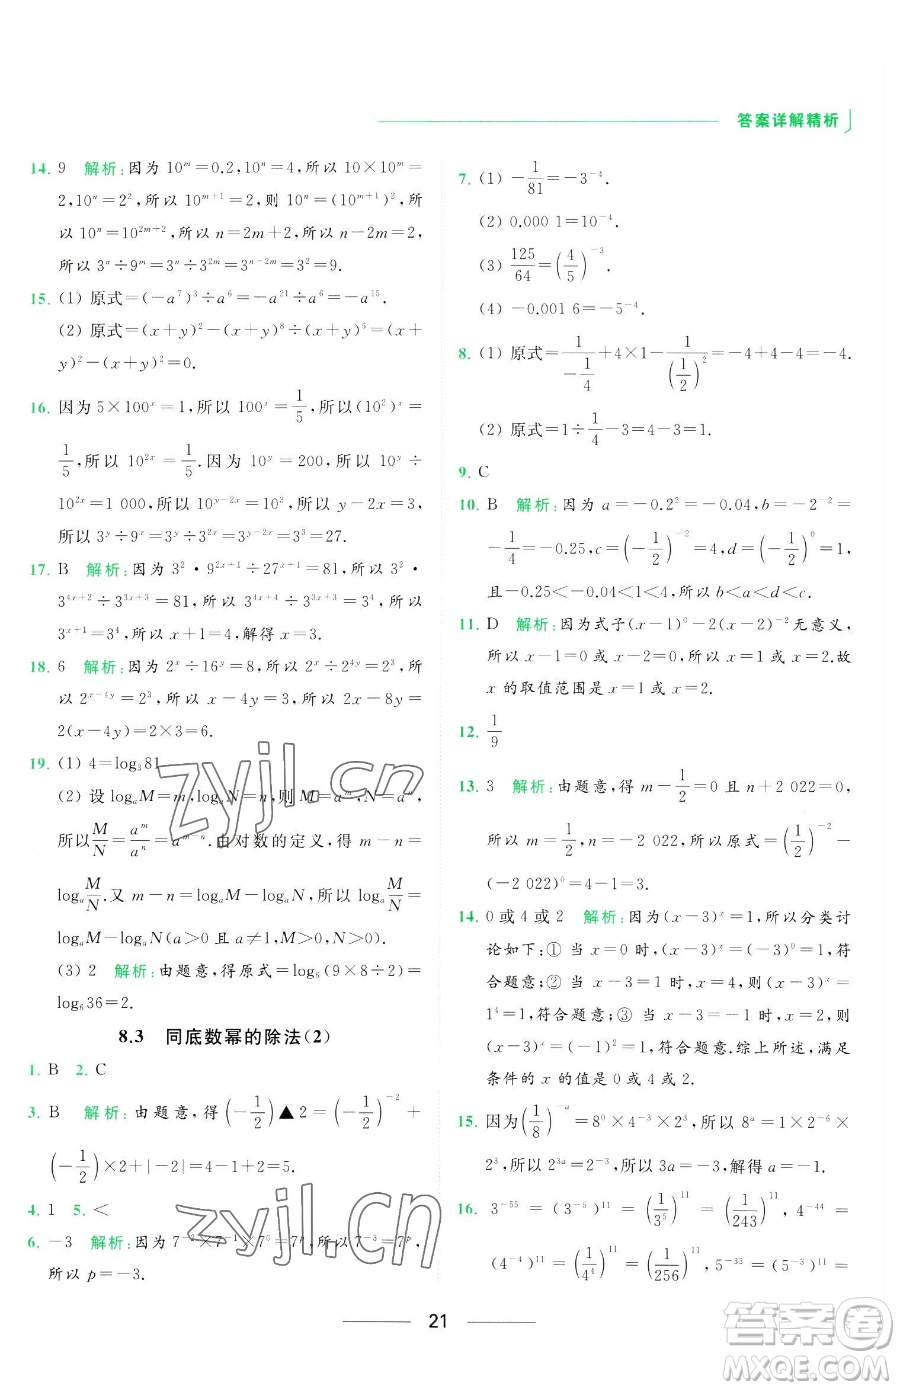 答案详解精析
14. 9 解析:因为 10^m=0.2,10^n=4,所以 10×10^m=
2,10^n=2^2,所以 10^{m+1}=2,则 10^n=(10^{m+1})^2,所
以 10^n=10^{2m+2},所以 n=2m+2,所以 n-2m=2,
所以 3^n÷9^m=3^n÷3^{2m}=3^{n-2m}=3^2=9.
15. (1) 原式=(-a^7)^3÷a^6=-a^{21}÷a^6=-a^{15}.
(2) 原式=(x+y)^2-(x+y)^8÷(x+y)^6=(x+
y)^2-(x+y)^2=0.
16. 因为 5×100^x=1,所以 100^x=1/5,所以(10^2)^x=
1/5,所以 10^{2x}=1/5.因为 10^y=200,所以 10^y÷
10^{2x}=1 000,所以 10^{y-2x}=10^3,所以 y-2x=3,
所以 3^y÷9^x=3^y÷3^{2x}=3^{y-2x}=3^3=27.
17. B 解析:因为 3^2·9^{2x+1}÷27^{x+1}=81,所以 3^2·
3^{4x+2}÷3^{3x+3}=81,所以 3^{4x+4}÷3^{3x+3}=3^4,所以
3^{x+1}=3^4,所以 x+1=4,解得 x=3.
18. 6 解析:因为 2^x÷16^y=8,所以 2^x÷2^{4y}=2^3,所
以 2^{x-4y}=2^3,所以 x-4y=3,所以 2x-8y=
2(x-4y)=2×3=6.
19. (1) 4=log_3 81.
(2) 设 log_a M=m,log_a N=n,则 M=a^m,N=a^n,
所以 M/N=a^m/a^n=a^{m-n}.由对数的定义,得 m-n=
log_a M/N.又 m-n=log_a M-log_a N,所以 log_a M/N=
log_a M-log_a N(a>0,a≠1,M>0,N>0).
(3) 2 解析:由题意,得原式=log_6(9×8÷2)=
log_6 36=2.
8.3 同底数幂的除法(2)
1. B 2. C
3. B 解析:由题意,得(-1/2)▲2=(-1/2)^{-2}+
(-1/2)×2+|-2|=4-1+2=5.
4. 1 5. <
6. -3 解析:因为 7^{-2}×7^{-1}×7^0=7^p,所以 7^{-3}=7^p,
所以 p=-3.
7. (1) -1/81=-3^{-4}.
(2) 0.000 1=10^{-4}.
(3) 125/64=(4/5)^{-3}.
(4) -0.001 6=-5^{-4}.
8. (1) 原式=1/(-1/4)+4×1-1/(1/2)^2=-4+4-4=-4.
(2) 原式=1÷1/4-3=4-3=1.
9. C
10. B 解析:因为 a=-0.2^2=-0.04,b=-2^{-2}=
-1/4=-0.25,c=(-1/2)^{-2}=4,d=(-1/2)^0=1,
且-0.25<-0.04<1<4,所以 b<a<d<c.
11. D 解析:因为式子(x-1)^0-2(x-2)^{-2}无意义,
所以 x-1=0 或 x-2=0,所以 x=1 或 x=2.故
x 的取值范围是 x=1 或 x=2.
12. 1/9
13. 3 解析:由题意,得 m-1/2=0 且 n+2 022=0,
所以 m=1/2,n=-2 022,所以原式=(1/2)^{-2}-
(-2 022)^0=4-1=3.
14. 0 或 4 或 2 解析:因为(x-3)^x=1,所以分类讨
论如下:① 当 x=0 时,(x-3)^x=(-3)^0=1,符
合题意;② 当 x-3=1 时,x=4,则(x-3)^x=
1^4=1,符合题意;③ 当 x-3=-1 时,x=2,则
(x-3)^x=(-1)^2=1,符合题意.综上所述,满足
条件的 x 的值是 0 或 4 或 2.
15. 因为(1/8)^{-a}=8^0×4^{-3}×2^3,所以 8^a=1×2^{-6}×
2^3,所以 2^{3a}=2^{-3},所以 3a=-3,解得 a=-1.
16. 3^{-55}=(3^{-5})^{11}=(1/3^5)^{11}=(1/243)^{11},4^{-44}=
(4^{-4})^{11}=(1/4^4)^{11}=(1/256)^{11},5^{-33}=(5^{-3})^{11}=
21
zyjl.cn
zyjl.cn
答案圈
MXQE.COM